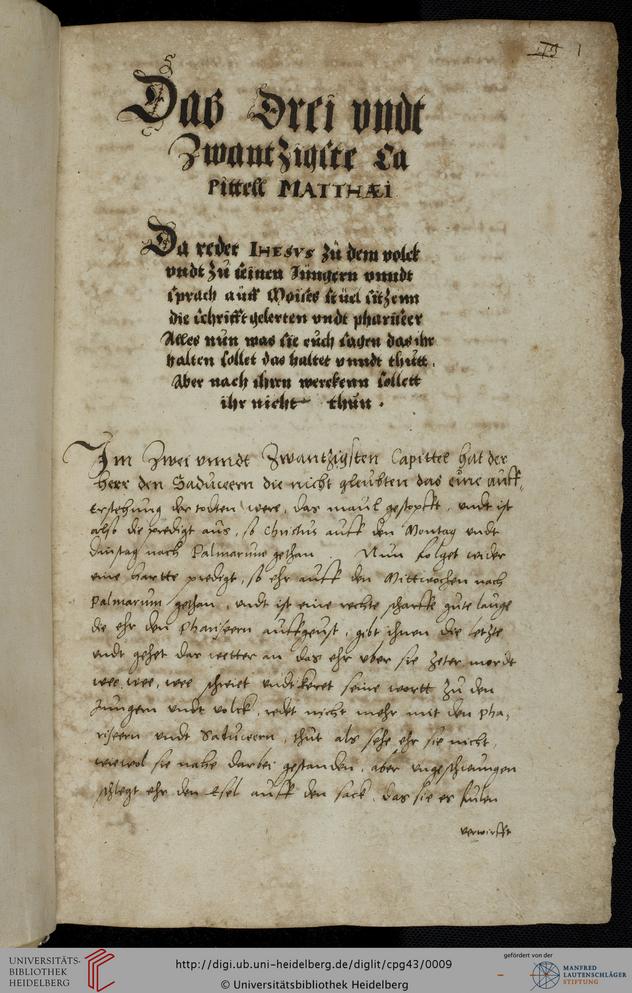 1
Das Drei vndt
Zwantzigste Ca
pittell MATTHÆi
Da redet IHESVS zu dem volck
vndt zu seinen Jüngern vnndt
sprach auff Moises stüel sitzenn
die schrifft gelerten vndt phariseer
Alles nun was sie euch sagen das ihr
halten sollet das haltet vnndt thutt.
Aber nach ihren werckenn sollett
ihr nicht thun.
Im Zwei vnndt Zwantzigsten Capittel hat der
herr den Saduceern die nicht gleubten das eine auff,
erstehung der todten were, das maul gestopfft, vndt ist
also die predigt aus, so Christus auff den Montag vndt
dinstag nach Palmarum gethan. Nun folget wider
eine hartte predigt, so ehr auff den Mittwochen nach
Palmarum gethan, vndt ist eine rechte scharffe gute lauge
die ehr den Phariseern auffgeust, gibt ihnen die letzte
vndt gehet das wetter an das ehr vber sie Zeter mordt
wee, wee, wee schreiet vndt keret seine wortt zu den
Jungern vndt volck, redet nicht mehr mit den Pha,
riseern vndt Saduceern, thut als sehe ehr sie nicht,
wiewol sie nahe darbei gestanden, aber vngeschwungen
schlegt ehr den Esel auff den sack, das sie es fulen
verwirfft
UNIVERSITÄTS-
BIBLIOTHEK
HEIDELBERG
http://digi.ub.uni-heidelberg.de/diglit/cpg43/0009
© Universitätsbibliothek Heidelberg
gefördert von der
MANFRED
LAUTENSCHLÄGER
STIFTUNG